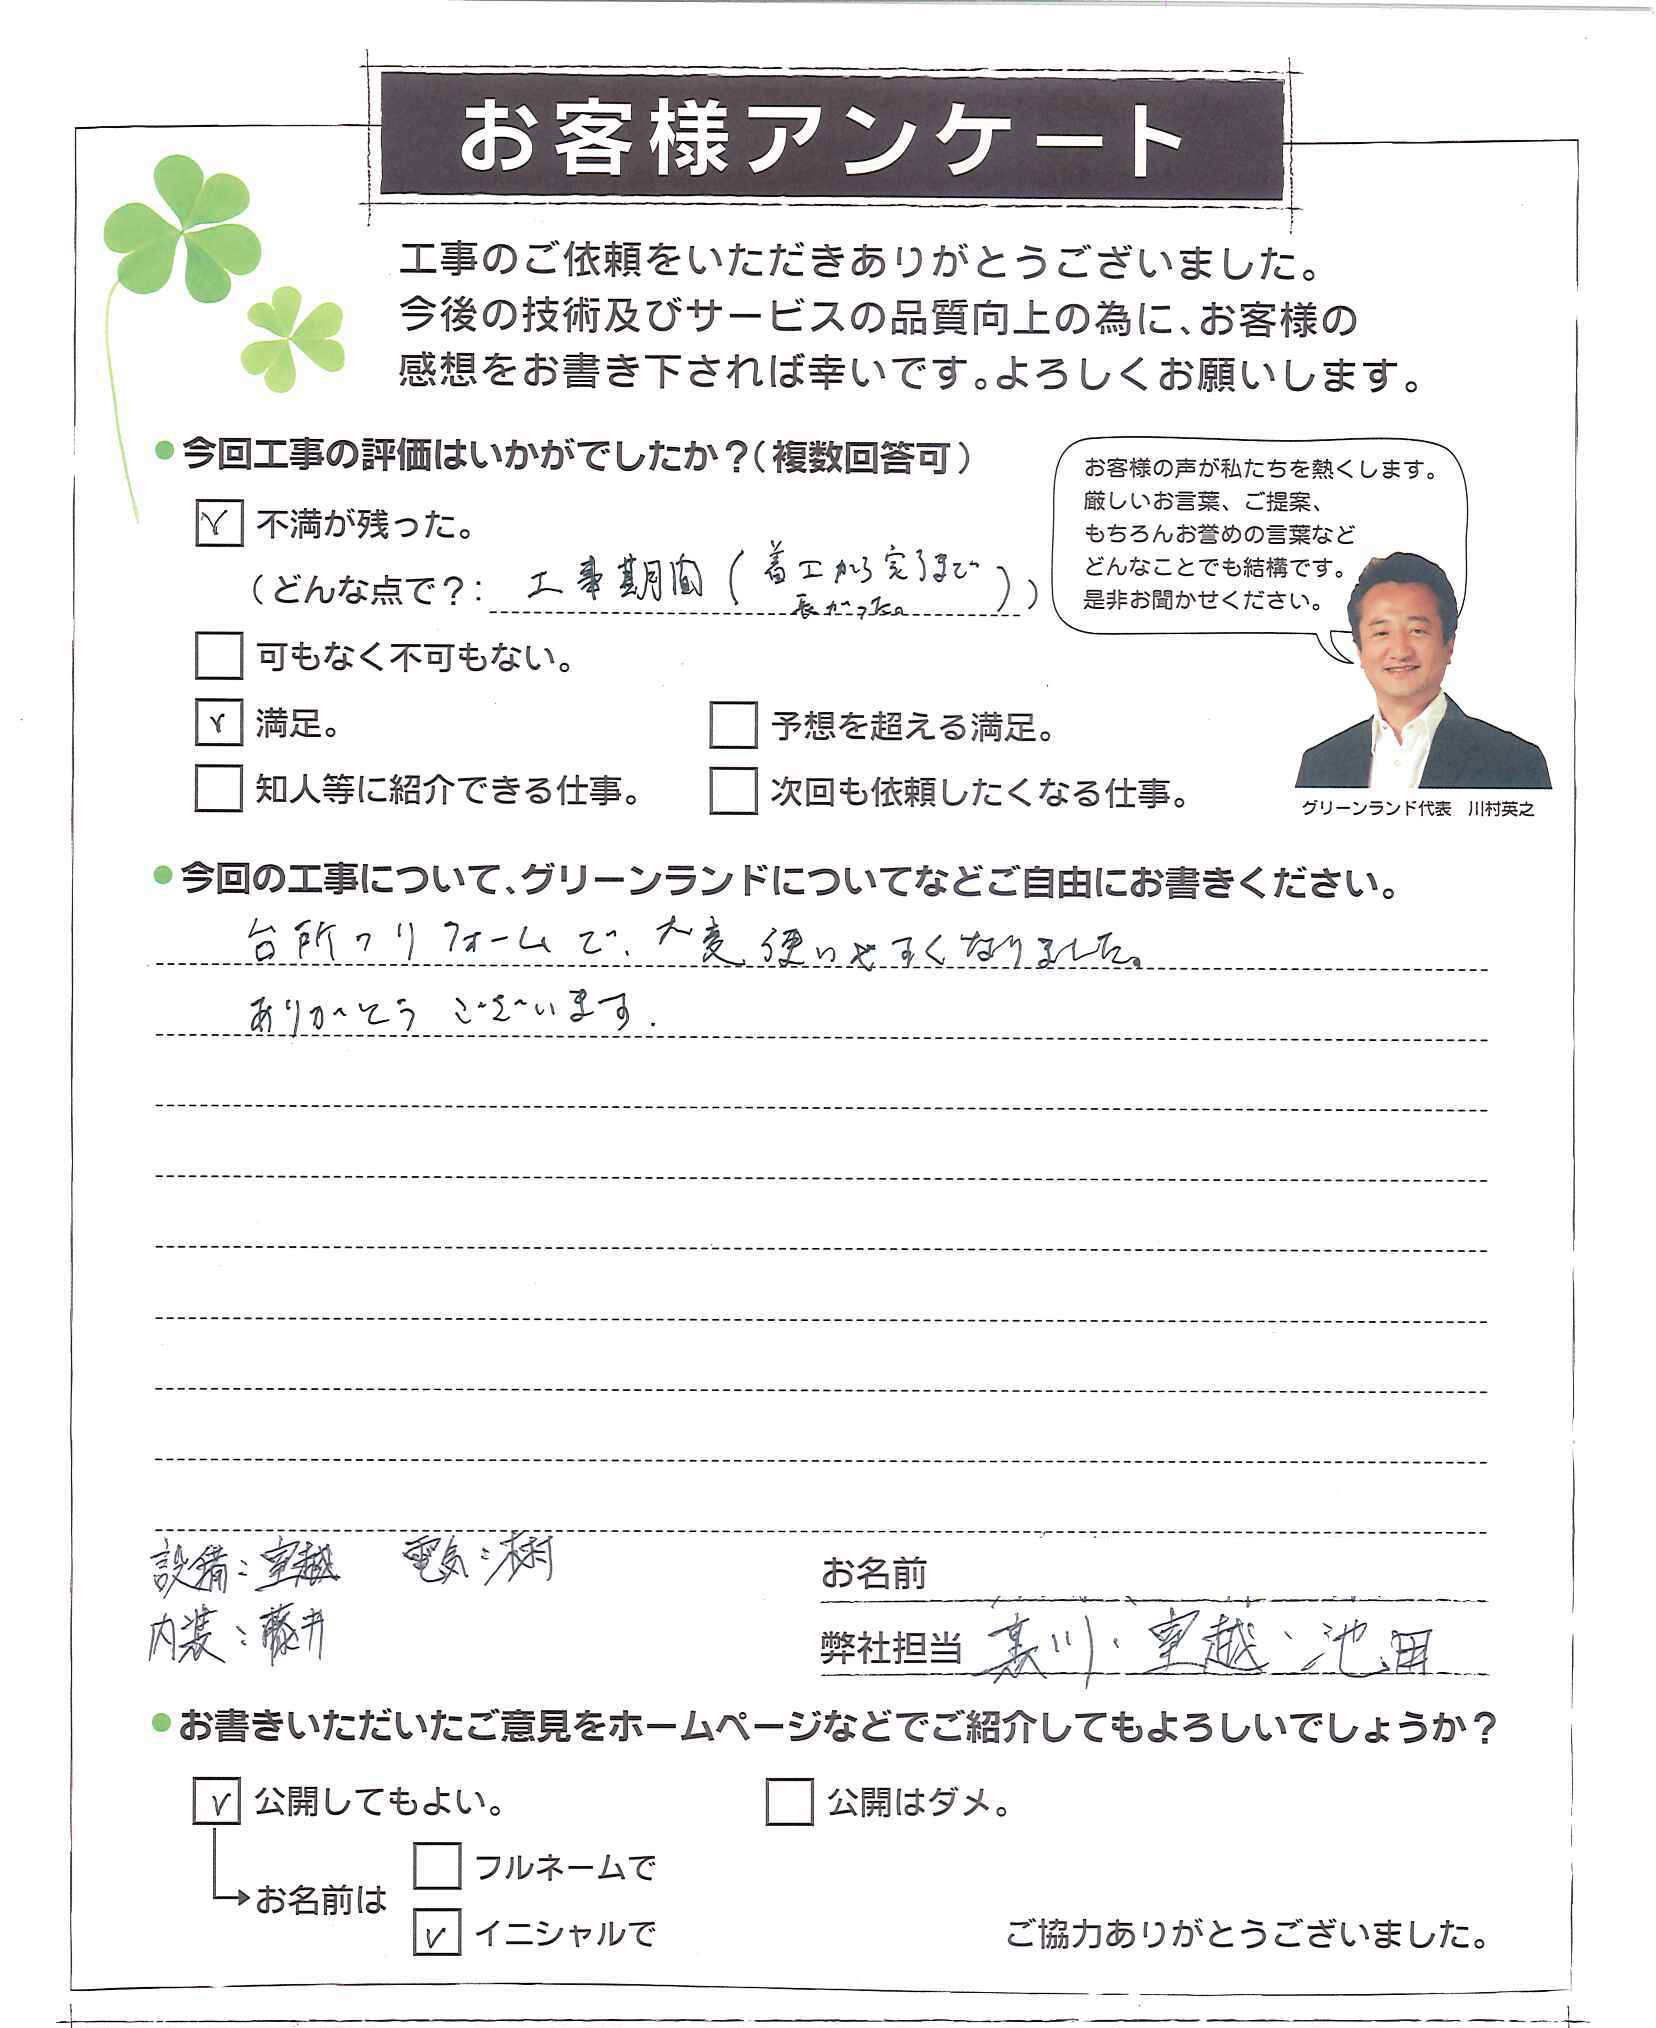 お客様アンケート
工事のご依頼をいただきありがとうございました。
今後の技術及びサービスの品質向上の為に、お客様の
感想をお書き下されば幸いです。よろしくお願いします。
●今回工事の評価はいかがでしたか？（複数回答可）
お客様の声が私たちを熱くします。
厳しいお言葉、ご提案、
もちろんお誉めの言葉など
どんなことでも結構です。
是非お聞かせください。
グリーンランド代表　川村英之
不満が残った。
（どんな点で？：工事期間（着工から完了まで長がった。））
可もなく不可もない。
満足。　予想を超える満足。
知人等に紹介できる仕事。　次回も依頼したくなる仕事。
●今回の工事について、グリーンランドについてなどご自由にお書きください。
台所のリフォームで、大変使いやすくなりました。
ありがとうございます.
設備：室越　電気：樹
内装：藤井
お名前
弊社担当　川・室越・池田
●お書きいただいたご意見をホームページなどでご紹介してもよろしいでしょうか？
公開してもよい。　公開はダメ。
お名前は
フルネームで
イニシャルで
ご協力ありがとうございました。